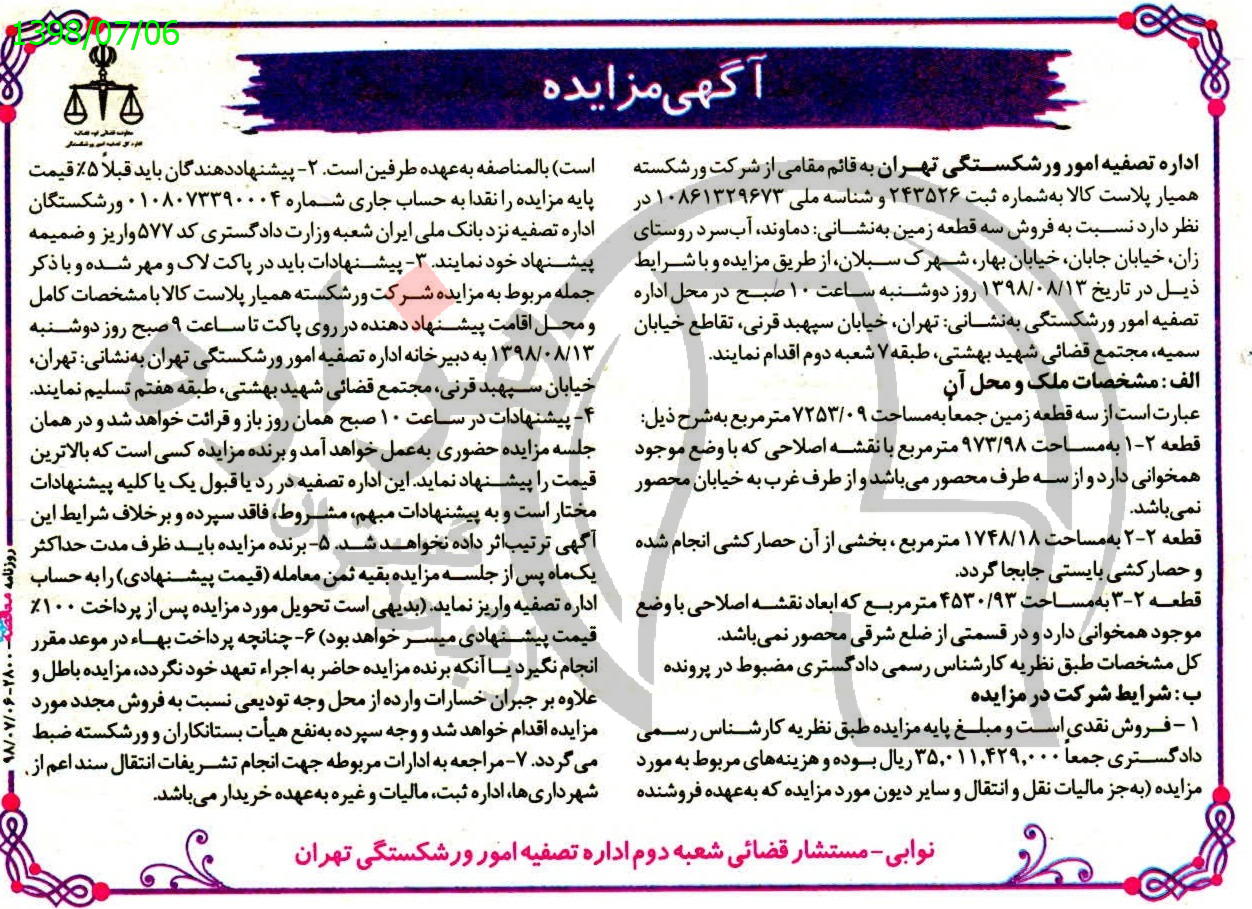 1398/07/06
آگهی مزایده
معاونت قضائی قوه قضائیه
اداره کل تصفیه امور ورشکستگی
اداره تصفیه امور ورشکستگی تهران به قائم مقامی از شرکت ورشکسته
همیار پلاست کالا به‌شماره ثبت ۲۴۳۵۲۶ و شناسه ملی ۱۰۸۶۱۳۲۹۶۷۳ در
نظر دارد نسبت به فروش سه قطعه زمین به‌نشانی: دماوند، آب‌سرد روستای
زان، خیابان جابان، خیابان بهار، شهرک سبلان، از طریق مزایده و با شرایط
ذیل در تاریخ ۱۳۹۸/۰۸/۱۳ روز دوشنبه ساعت ۱۰ صبح در محل اداره
تصفیه امور ورشکستگی به‌نشانی: تهران، خیابان سپهبد قرنی، تقاطع خیابان
سمیه، مجتمع قضائی شهید بهشتی، طبقه۷ شعبه دوم اقدام نمایند.
الف: مشخصات ملک و محل آن
عبارت است از سه قطعه زمین جمعاً به‌مساحت ۷۲۵۳/۰۹ مترمربع به‌شرح ذیل:
قطعه ۲-۱ به‌مساحت ۹۷۳/۹۸ مترمربع با نقشه اصلاحی که با وضع موجود
همخوانی دارد و از سه طرف محصور می‌باشد و از طرف غرب به خیابان محصور
نمی‌باشد.
قطعه ۲-۲ به‌مساحت ۱۷۴۸/۱۸ مترمربع ، بخشی از آن حصارکشی انجام شده
و حصارکشی بایستی جابجا گردد.
قطعه ۲-۳ به‌مساحت ۴۵۳۰/۹۳ مترمربع که ابعاد نقشه اصلاحی با وضع
موجود همخوانی دارد و در قسمتی از ضلع شرقی محصور نمی‌باشد.
کل مشخصات طبق نظریه کارشناس رسمی دادگستری مضبوط در پرونده
ب: شرایط شرکت در مزایده
۱ – فروش نقدی است و مبلغ پایه مزایده طبق نظریه کارشناس رسمی
دادگستری جمعاً ۳۵,۰۱۱,۴۲۹,۰۰۰ ریال بوده و هزینه‌های مربوط به مورد
مزایده (به‌جز مالیات نقل و انتقال و سایر دیون مورد مزایده که به‌عهده فروشنده
است) بالمناصفه به‌عهده طرفین است. ۲- پیشنهاددهندگان باید قبلاً ۵٪ قیمت
پایه مزایده را نقدا به حساب جاری شماره ۰۱۰۸۰۷۳۳۹۰۰۰۴ ورشکستگان
اداره تصفیه نزد بانک ملی ایران شعبه وزارت دادگستری کد ۵۷۷ واریز و ضمیمه
پیشنهاد خود نمایند. ۳- پیشنهادات باید در پاکت لاک و مهر شده و با ذکر
جمله مربوط به مزایده شرکت ورشکسته همیار پلاست کالا با مشخصات کامل
و محل اقامت پیشنهاد دهنده در روی پاکت تا ساعت ۹ صبح روز دوشنبه
۱۳۹۸/۰۸/۱۳ به دبیرخانه اداره تصفیه امور ورشکستگی تهران به‌نشانی: تهران،
خیابان سپهبد قرنی، مجتمع قضائی شهید بهشتی، طبقه هفتم تسلیم نمایند.
۴- پیشنهادات در ساعت ۱۰ صبح همان روز باز و قرائت خواهد شد و در همان
جلسه مزایده حضوری به‌عمل خواهد آمد و برنده مزایده کسی است که بالاترین
قیمت را پیشنهاد نماید. این اداره تصفیه در رد یا قبول یک یا کلیه پیشنهادات
مختار است و به پیشنهادات مبهم، مشروط، فاقد سپرده و برخلاف شرایط این
آگهی ترتیب‌اثر داده نخواهد شد. ۵- برنده مزایده باید ظرف مدت حداکثر
یک‌ماه پس از جلسه مزایده بقیه ثمن معامله (قیمت پیشنهادی) را به حساب
اداره تصفیه واریز نماید. (بدیهی است تحویل مورد مزایده پس از پرداخت ۱۰۰٪
قیمت پیشنهادی میسر خواهد بود) ۶- چنانچه پرداخت بهاء در موعد مقرر
انجام نگیرد یا آنکه برنده مزایده حاضر به اجراء تعهد خود نگردد، مزایده باطل و
علاوه بر جبران خسارات وارده از محل وجه تودیعی نسبت به فروش مجدد مورد
مزایده اقدام خواهد شد و وجه سپرده به‌نفع هیأت بستانکاران و ورشکسته ضبط
می‌گردد. ۷- مراجعه به ادارات مربوطه جهت انجام تشریفات انتقال سند اعم از
شهرداری‌ها، اداره ثبت، مالیات و غیره به‌عهده خریدار می‌باشد.
نوابی- مستشار قضائی شعبه دوم اداره تصفیه امور ورشکستگی تهران
روزنامه ۲۸۰۰-۹۸/۰۷/۰۶